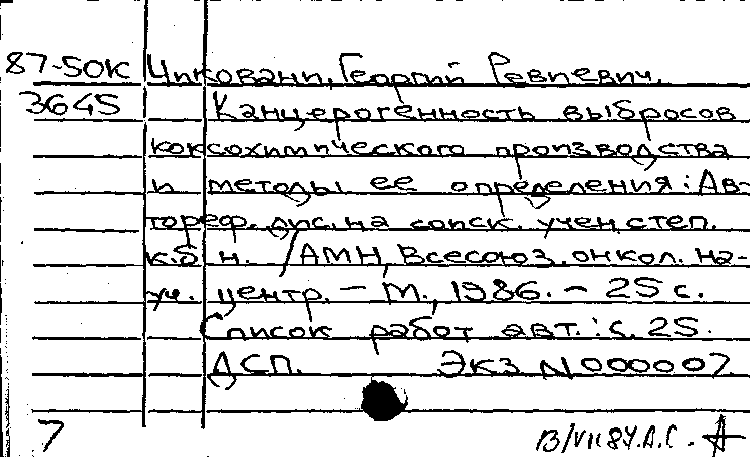 87-50К Чиковани, Георгий Ревиевич.
3645 Канцерогенность выбросов
коксохимического производства
и методы ее определения: Ав-
тореф. дис. на соиск. учен. степ.
к.б н. /АМН, Всесоюз. онкол. на-
уч. центр. – М., 1986. – 25 с.
Список работ авт.: с. 25.
ДСП. Экз N 000007
7